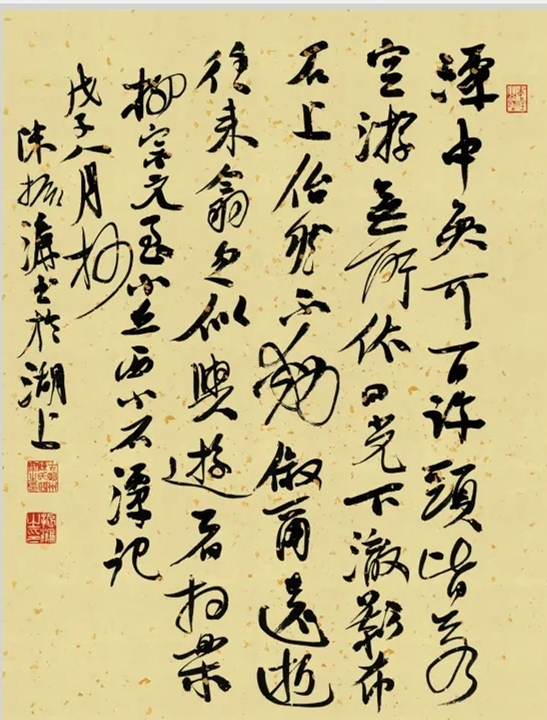 潭中魚可百許頭皆若
空游無所依日光下澈影布
石上佁然不動俶爾遠逝
往来翕忽似與遊者相樂
柳宗元至小丘西小石潭记
戊子八月杪
陈振濂书於湖上